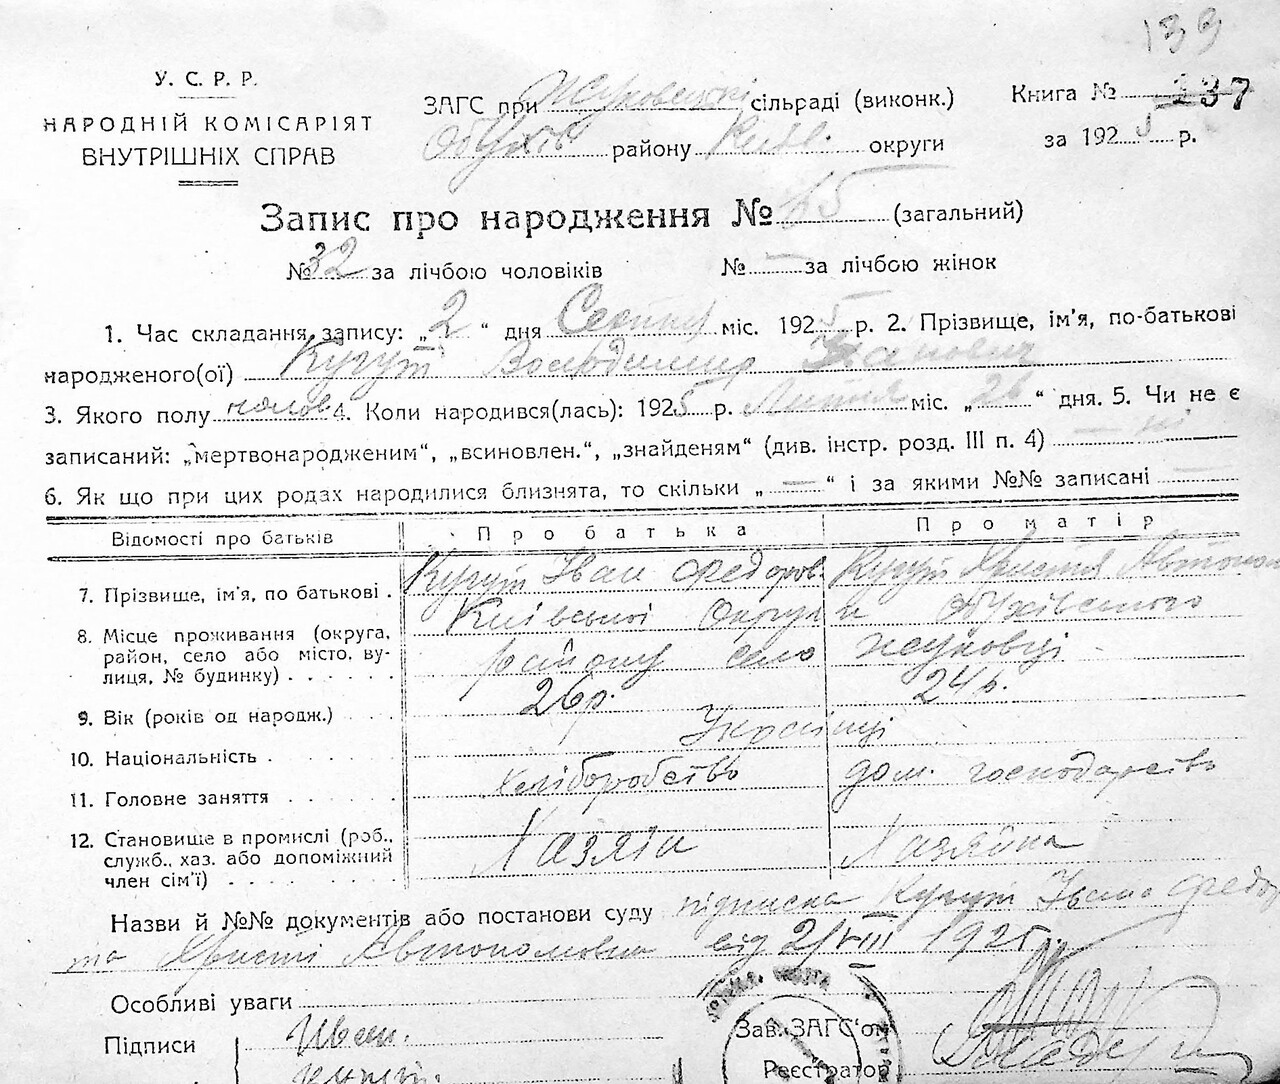 133
У. С. Р. Р.
НАРОДНІЙ КОМІСАРІЯТ
ВНУТРІШНІХ СПРАВ
ЗАГС при Жуковецькі сільраді (виконк.)
Обухів району Київ. округи
Книга № 237
за 1925 р.
Запис про народження № 65 (загальний)
№ 32 за лічбою чоловіків № — за лічбою жінок
1. Час складання запису: „2“ дня Серпня міс. 1925 р. 2. Прізвище, ім'я, по-батькові
народженого(ої) Кугут Володимир Іванович
3. Якого полу чолов. 4. Коли народився(лась): 1925 р. Липня міс. „26“ дня. 5. Чи не є
записаний: „мертвонародженим“, „всиновлен.“, „знайденям“ (див. інстр. розд. III п. 4) — ні
6. Як що при цих родах народилися близнята, то скільки „—“ і за якими №№ записані —
Відомості про батьків Про батька Про матір
7. Прізвище, ім'я, по батькові . Кугут Іван Федоров. Кугут Христя Автоном
8. Місце проживання (округа, район, село або місто, вулиця, № будинку) . . . . . . Київської Округи Обухівського
району село Жуковці
9. Вік (років од народж.) . . . 26 р. 24 р.
10. Національність . . . . . . Українці
11. Головне заняття . . . . . . Хліборобство дом. господарство
12. Становище в промислі (роб., служб., хаз. або допоміжний член сім'ї) . . . . . . . . Хазяїн Хазяйка
Назви й №№ документів або постанови суду підписка Кугут Івана Федор
та Христі Автономовна від 2/VIII 1925 р.
Особливі уваги
Підписи Иван.
Зав. ЗАГС'ом
Реєстратор